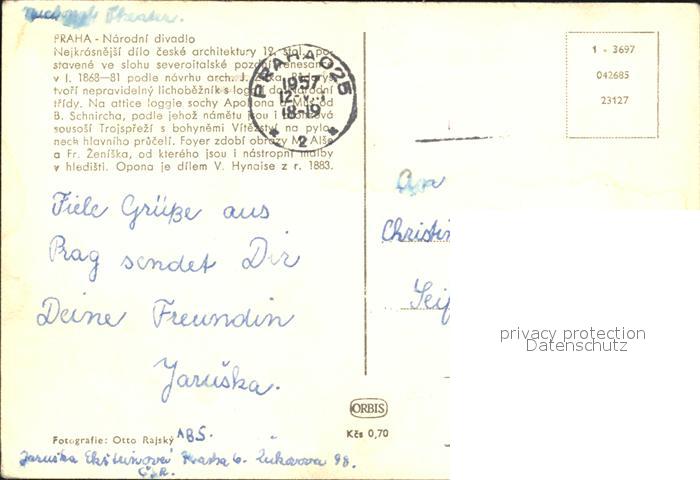 Theater.
PRAHA - Národní divadlo
Nejkrásnější dílo české architektury 19. stol., po-
stavené ve slohu severoitalské pozdní renesance
v l. 1868—81 podle návrhu arch. J.
tvoří nepravidelný lichoběžník s loggií do Národní
třídy. Na attice loggie sochy Apollona a Mus od
B. Schnircha, podle jehož námětu jsou i bronzová
sousoší Trojspřeží s bohyněmi Vítězství na pylo-
nech hlavního průčelí. Foyer zdobí obrazy M. Alše
a Fr. Ženíška, od kterého jsou i nástropní malby
v hledišti. Opona je dílem V. Hynaise z r. 1883.
PRAHA 025
1957
12.-V.
18-19
2
1 - 3697
042685
23127
Fiele Grüße aus
Prag sendet Dir
Deine Freundin
Jaruška.
An
Christin
Seif
privacy protection
Datenschutz
ORBIS
Kčs 0,70
Fotografie: Otto Rajský ABS.
Jaruška Ekšteinová Praha 6.
ČSR.